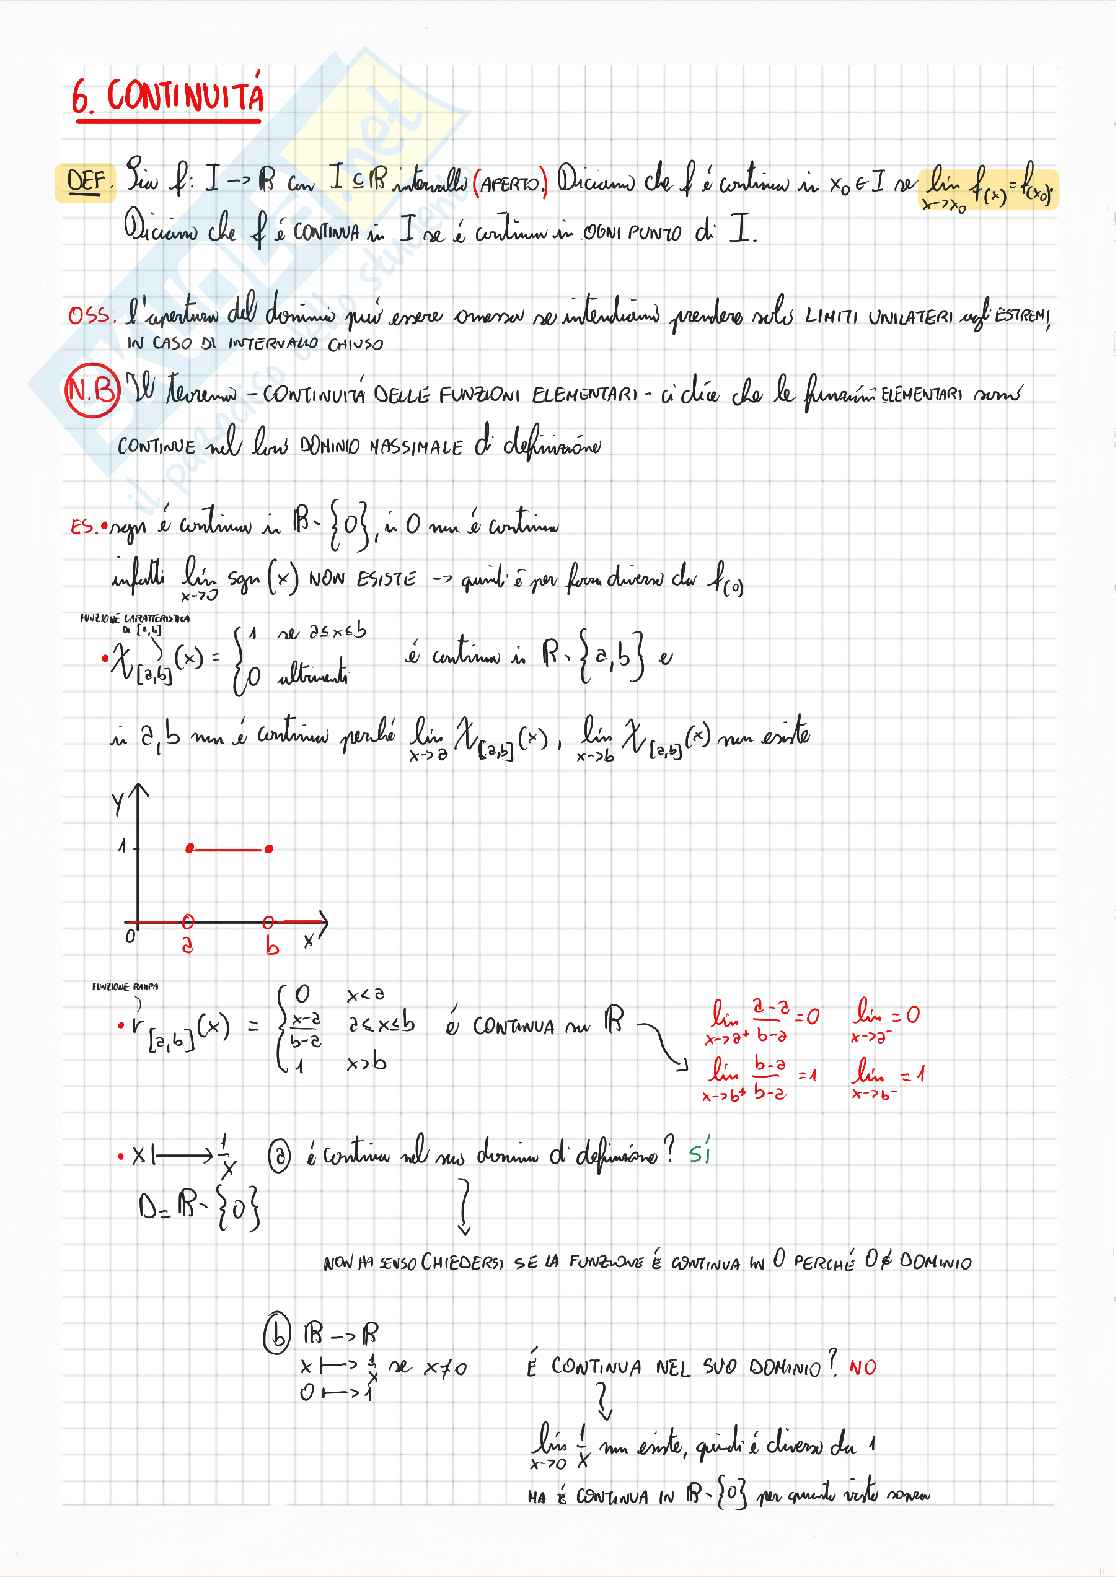 6. CONTINUITÁ
DEF. Sia f: I → ℝ con I ⊆ ℝ intervallo (APERTO.) Diciamo che f é continua in x₀ ∈ I se lim x→x₀ f(x) = f(x₀).
Diciamo che f é CONTINUA in I se é continua in OGNI PUNTO di I.
OSS. l'apertura del dominio puó essere omessa se intendiamo prendere solo LIMITI UNILATERI agli ESTREMI,
IN CASO DI INTERVALLO CHIUSO
N.B Il teorema - CONTINUITÁ DELLE FUNZIONI ELEMENTARI - ci dice che le funzioni ELEMENTARI sono
CONTINUE nel loro DOMINIO MASSIMALE di definizione
ES. • sgn é continua in ℝ∖{0}, in 0 non é continua
infatti lim x→0 sgn(x) NON ESISTE → quindi é per forza diverso da f(0)
FUNZIONE CARATTERISTICA
DI [a,b]
• χ[a,b](x) = { 1 se a≤x≤b
0 altrimenti
é continua in ℝ∖{a,b} e
in a,b non é continua perché lim x→a χ[a,b](x), lim x→b χ[a,b](x) non esiste
Y
1
0 a b X
FUNZIONE RAMPA
• r[a,b](x) = { 0 x<a
x-a/b-a a≤x≤b
1 x>b
é CONTINUA su ℝ
lim x→a⁺ a-a/b-a = 0 lim x→a⁻ = 0
lim x→b⁺ b-a/b-a = 1 lim x→b⁻ = 1
• x ⟼ 1/x (a) é continua nel suo dominio di definizione? SÍ
D = ℝ∖{0}
NON HA SENSO CHIEDERSI SE LA FUNZIONE É CONTINUA IN 0 PERCHÉ 0∉ DOMINIO
(b) ℝ → ℝ
x ⟼ 1/x se x≠0 É CONTINUA NEL SUO DOMINIO? NO
0 ⟼ 1
lim x→0 1/x non esiste, quindi é diverso da 1
MA É CONTINUA IN ℝ∖{0} per quanto visto sopra